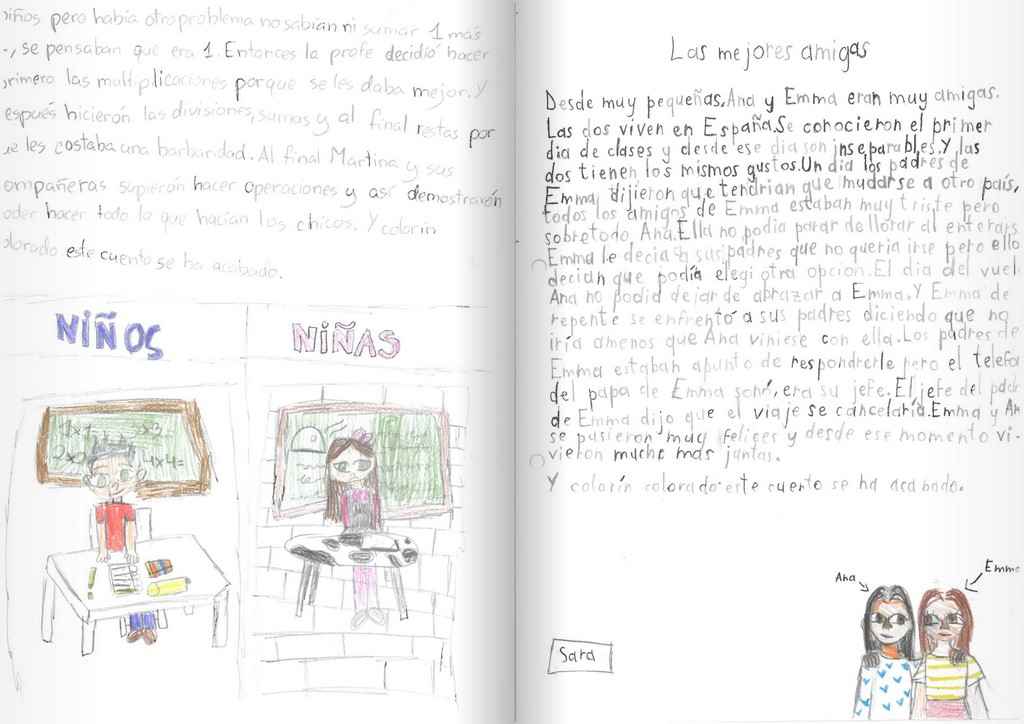 niños pero había otro problema no sabían ni sumar 1 más
-, se pensaban que era 1. Entonces la profe decidió hacer
primero las multiplicaciones porque se les daba mejor. Y
espués hicierón las divisiones, sumas y al final restas por
ue les costaba una barbaridad. Al final Martina y sus
ompañeras supierón hacer operaciones y así demostrarón
oder hacer todo lo que hacían los chicos. Y colorín
olorado este cuento se ha acabado.
NIÑOS
NIÑAS
1x1 3x3
2x2 4x4=
Las mejores amigas
Desde muy pequeñas, Ana y Emma eran muy amigas.
Las dos viven en España. Se conocieron el primer
dia de clases y desde ese dia son inseparables. Y las
dos tienen los mismos gustos. Un dia los padres de
Emma, dijieron que tendrian que mudarse a otro país,
todos los amigos de Emma estaban muy triste pero
sobretodo Ana. Ella no podia parar de llorar al enterars
Emma le decia a sus padres que no queria irse pero ello
decian que podía elegi otra opcion. El dia del vuel
Ana no podia dejar de abrazar a Emma. Y Emma de
repente se enfrentó a sus padres diciendo que no
iría amenos que Ana viniese con ella. Los padres de
Emma estaban apunto de respondrerle pero el telefo
del papa de Emma sonó, era su jefe. El jefe del padr
de Emma dijo que el viaje se cancelaría. Emma y An
se pusieron muy felices y desde ese momento vi-
vieron mucho mas juntas.
Y colorín colorado este cuento se ha acabado.
Ana
Emma
Sara